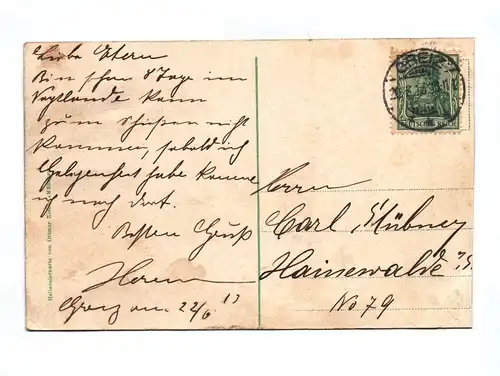 Liebe Eltern
Bin schon 8 Tage im
Vogtlande kann
zum Schießen nicht
kommen, sobald ich
Gelegenheit habe komme
ich nach dort.
Besten Gruß
Greiz am 22/6 13
GREIZ
DEUTSCHES REICH
Herrn
Carl Hübner
Hainewalde
No 79
Heliocolorkarte von Ottmar